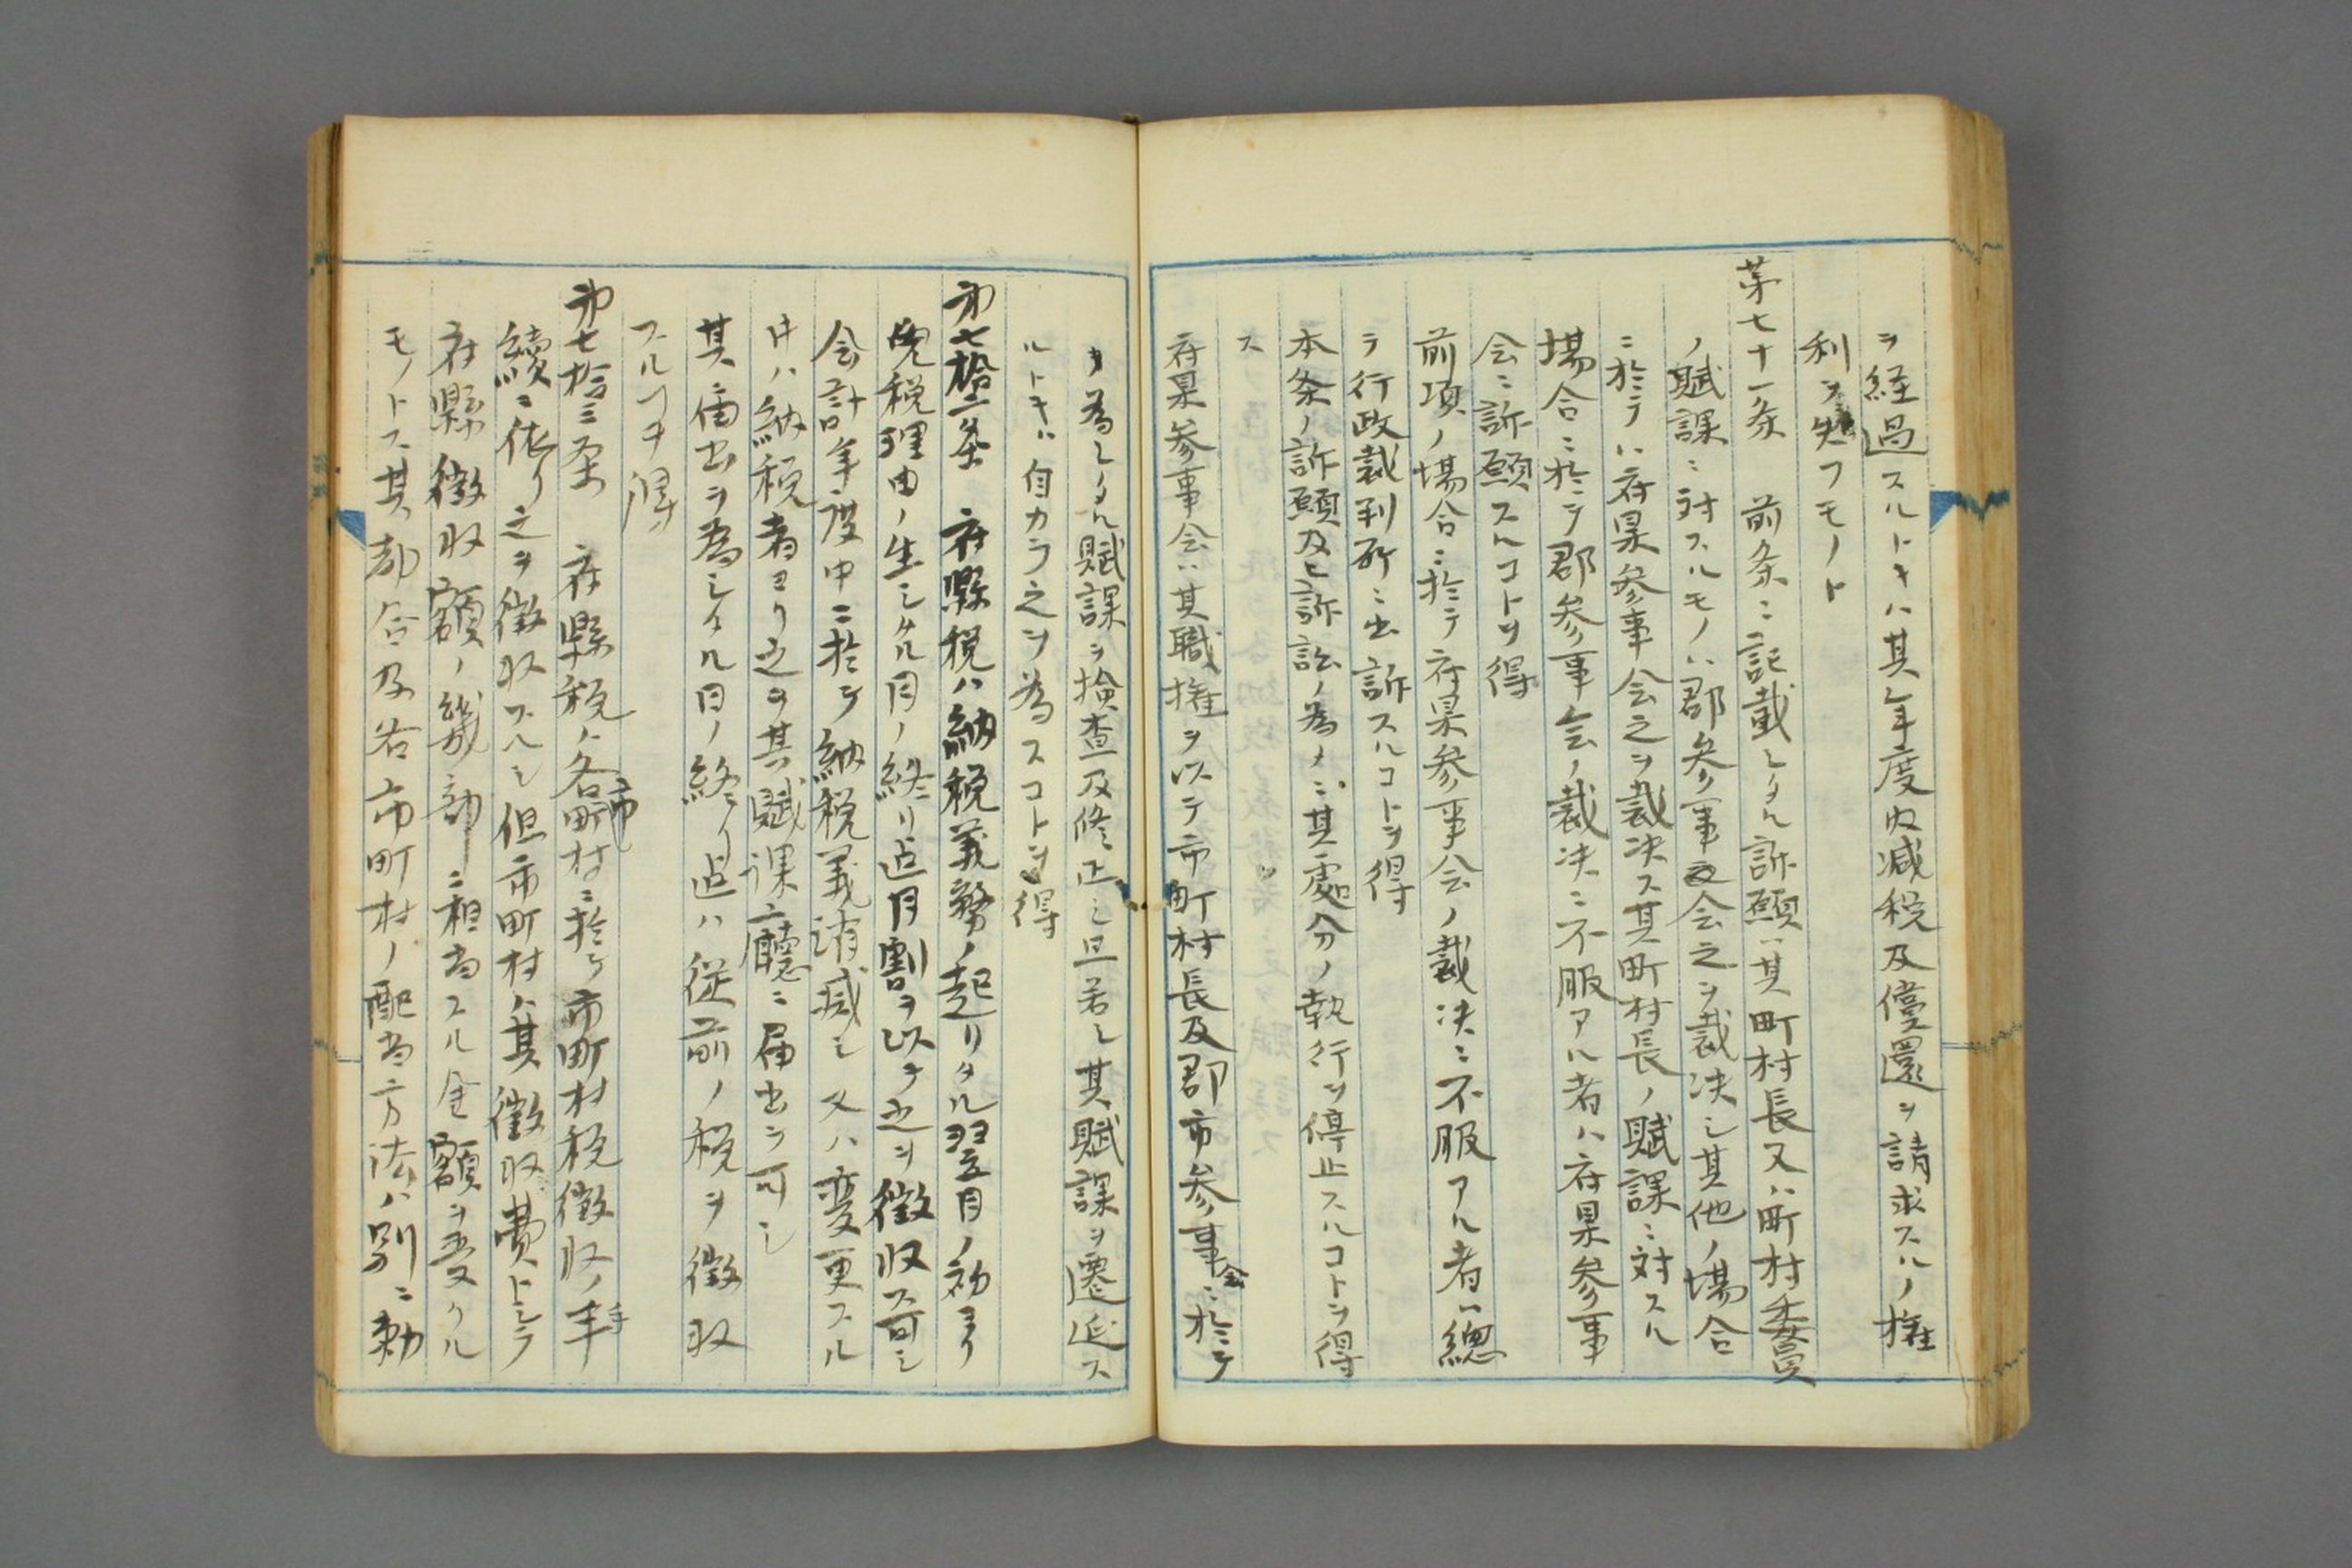 ヲ経過スルトキハ其年度内減税及償還ヲ請求スルノ権
利ヲ失フモノト
第七十一条 前条ニ記載シタル訴願ハ其町村長又ハ町村委員
ノ賦課ニ対スルモノハ郡参事会之ヲ裁决シ其他ノ場合
ニ於テハ府県参事会之ヲ裁决ス其町村長ノ賦課ニ対スル
場合ニ於テ郡参事会ノ裁决ニ不服アル者ハ府県参事
会ニ訴願スルコトヲ得
前項ノ場合ニ於テ府県参事会ノ裁决ニ不服アル者ハ總
テ行政裁判所ニ出訴スルコトヲ得
本条ノ訴願及ヒ訴訟ノ為メニ其處分ノ執行ヲ停止スルコトヲ得
ス
府県参事会ハ其職権ヲ以テ市町村長及郡市参事会ニ於テ
為シタル賦課ヲ検査及修正シ且若シ其賦課ヲ遷延ス
ルトキハ自カラ之ヲ為スコトヲ得
第七拾二条 府縣税ハ納税義務ノ起リタル翌月ノ初ヨリ
免税理由ノ生シタル月ノ終リ迄月割ヲ以テ之ヲ徴収ス可シ
会計年度中ニ於テ納税義務消滅シ又ハ変更スル
時ハ納税者ヨリ之ヲ其賦課廳ニ届出ツ可シ
其届出ヲ為シタル月ノ終リ迄ハ従前ノ税ヲ徴収
スルヿヲ得
第七拾三条 府縣税ハ各市町村ニ於テ市町村税徴収ノ手
續ニ依リ之ヲ徴収スヘシ但市町村ハ其徴収費トシテ
府縣徴収額ノ幾部ニ相当スル金額ヲ受クル
モノトス其都合及各市町村ノ配当方法ハ別ニ勅